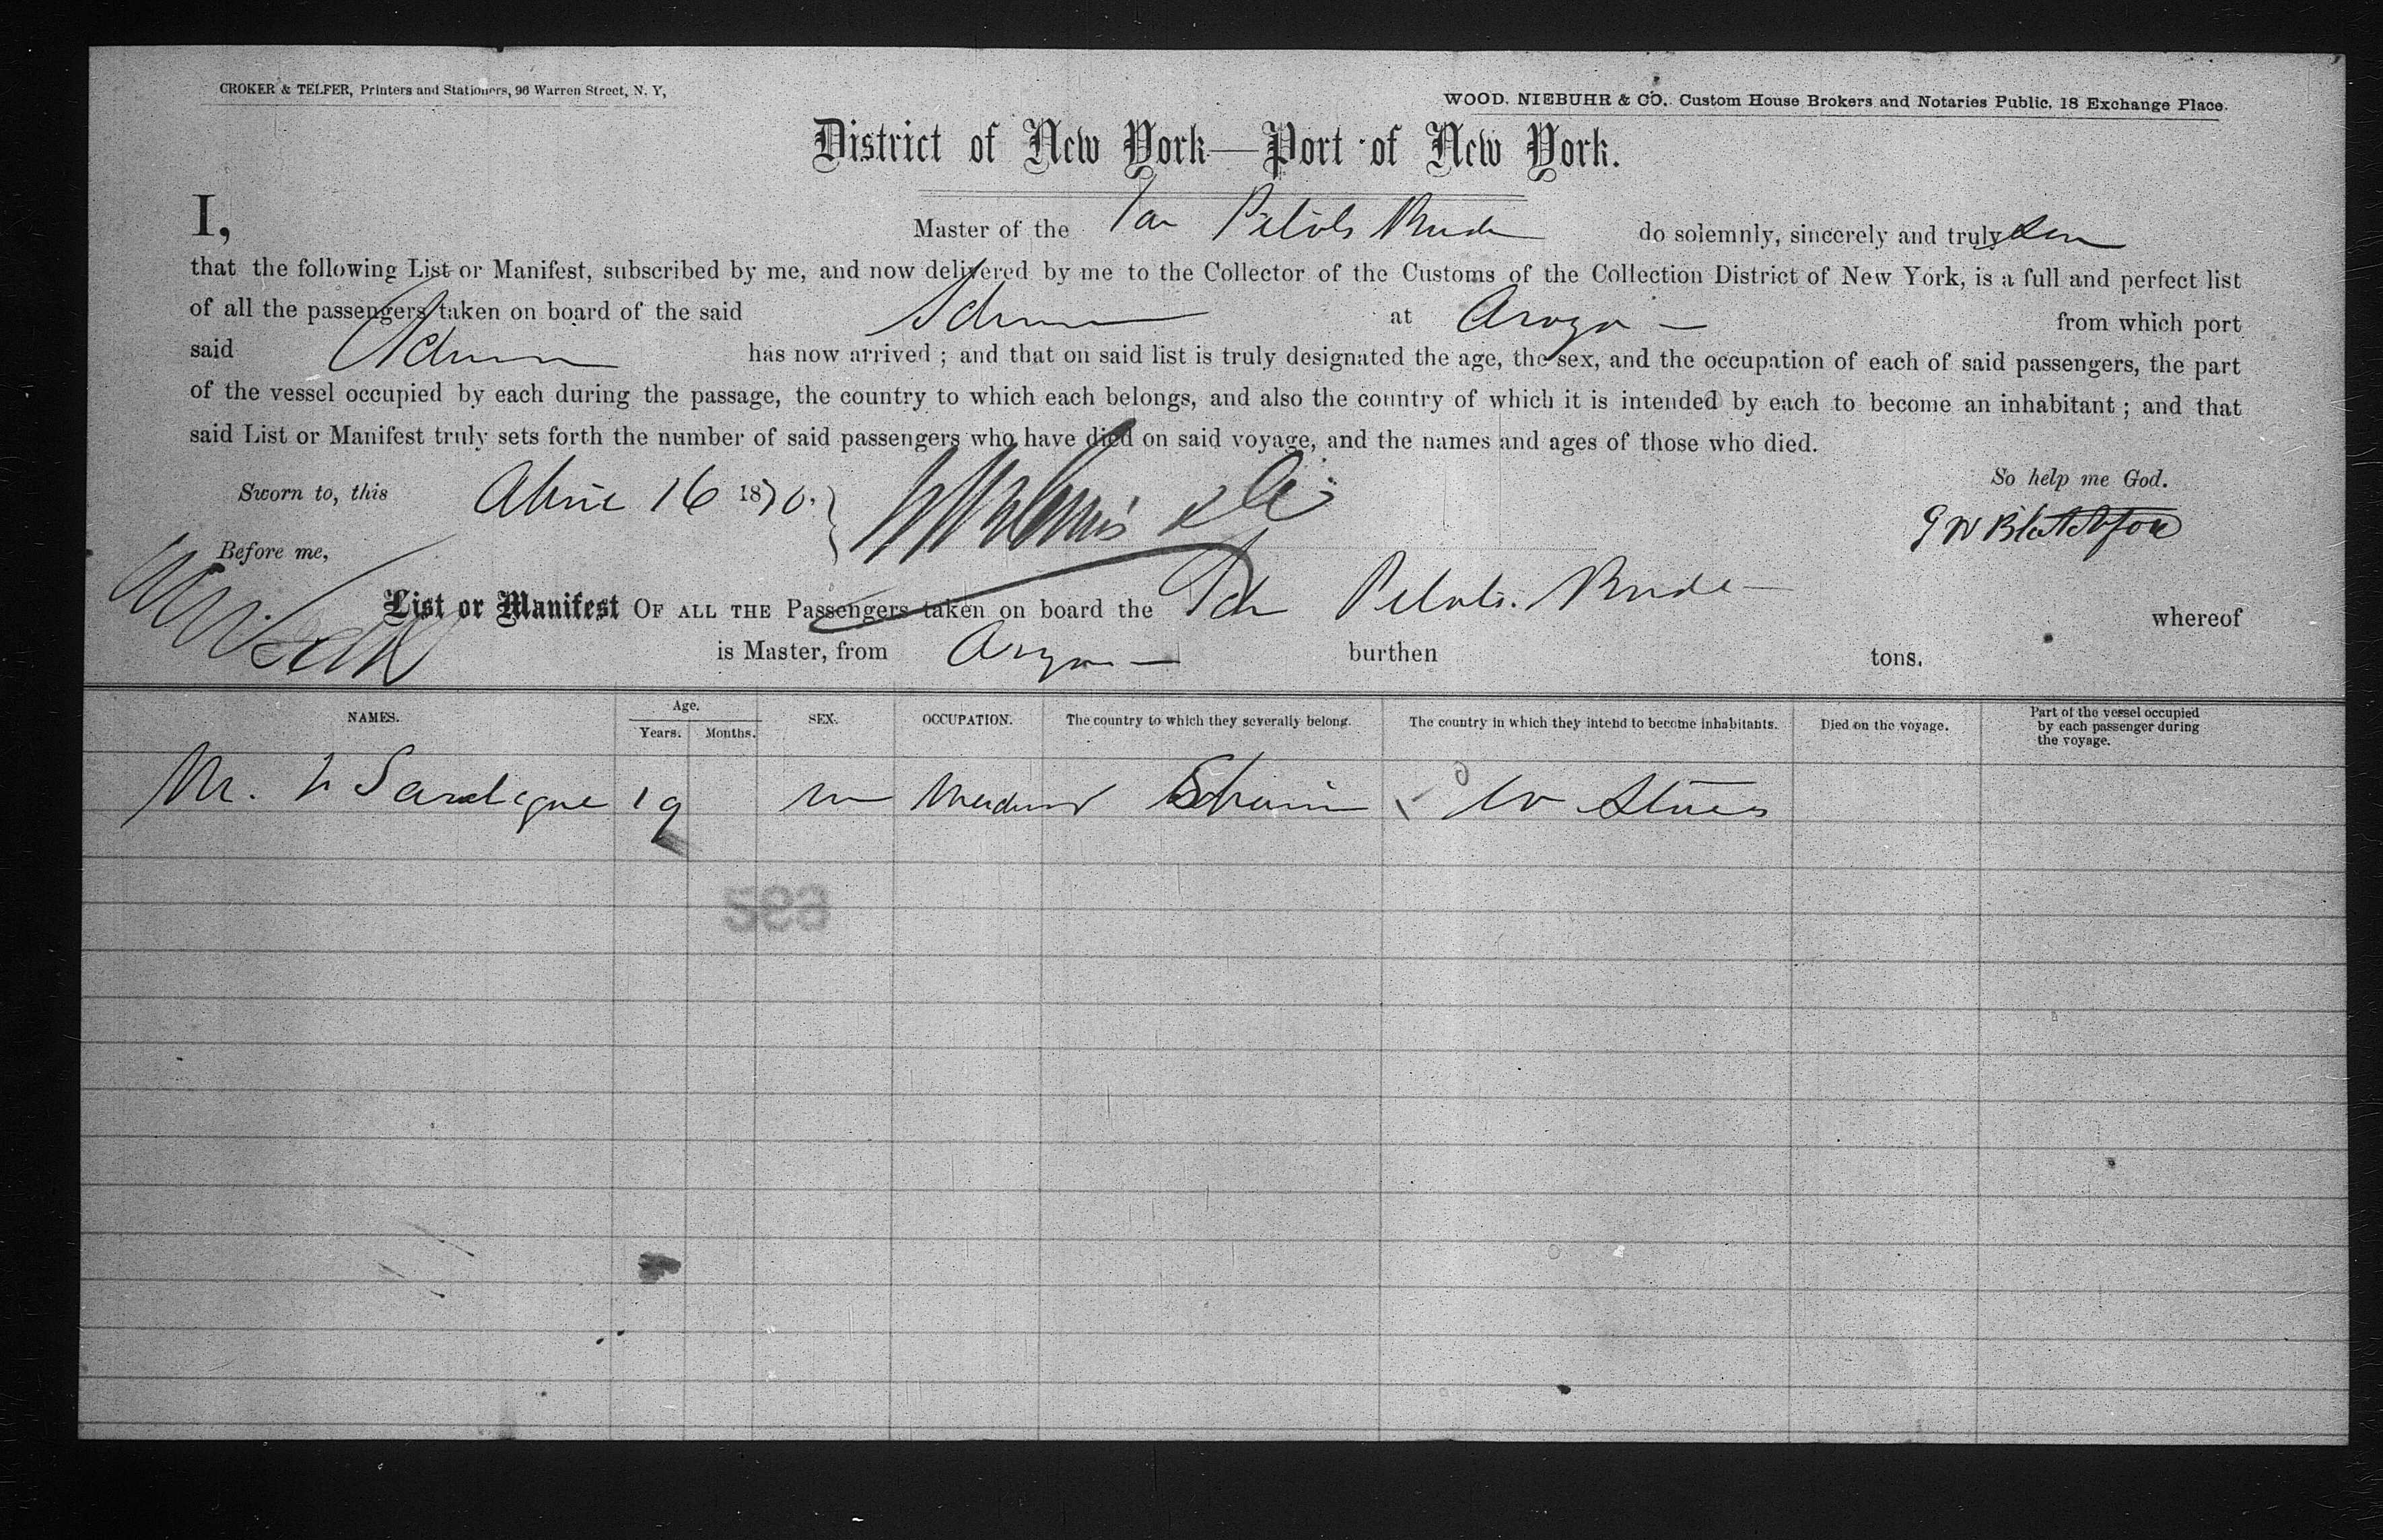 CROKER & TELFER, Printers and Stationers, 96 Warren Street, N. Y,
WOOD, NIEBUHR & CO., Custom House Brokers and Notaries Public, 18 Exchange Place.
District of New York—Port of New York.
I, Master of the Pilots Bride do solemnly, sincerely and truly
that the following List or Manifest, subscribed by me, and now delivered by me to the Collector of the Customs of the Collection District of New York, is a full and perfect list
of all the passengers taken on board of the said Schr at from which port
said Schr has now arrived ; and that on said list is truly designated the age, the sex, and the occupation of each of said passengers, the part
of the vessel occupied by each during the passage, the country to which each belongs, and also the country of which it is intended by each to become an inhabitant ; and that
said List or Manifest truly sets forth the number of said passengers who have died on said voyage, and the names and ages of those who died.
Sworn to, this 16 1870.
So help me God.
Before me,
List or Manifest OF ALL THE Passengers taken on board the Schr Pilots Bride whereof
is Master, from burthen tons.
NAMES. Age. Years. Months. SEX. OCCUPATION. The country to which they severally belong. The country in which they intend to become inhabitants. Died on the voyage. Part of the vessel occupied by each passenger during the voyage.
Mr. 19 m Spain U States